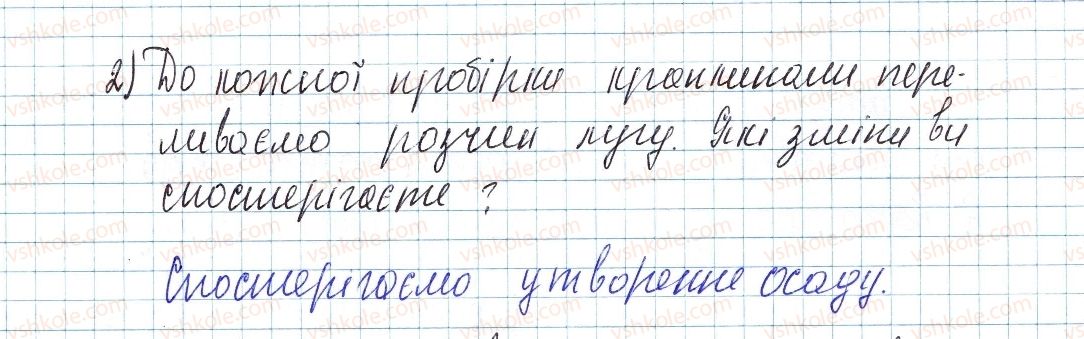 2) До кожної пробірки краплинами пере-
ливаємо розчин лугу. Які зміни ви
спостерігаєте?
Спостерігаємо утворення осаду.